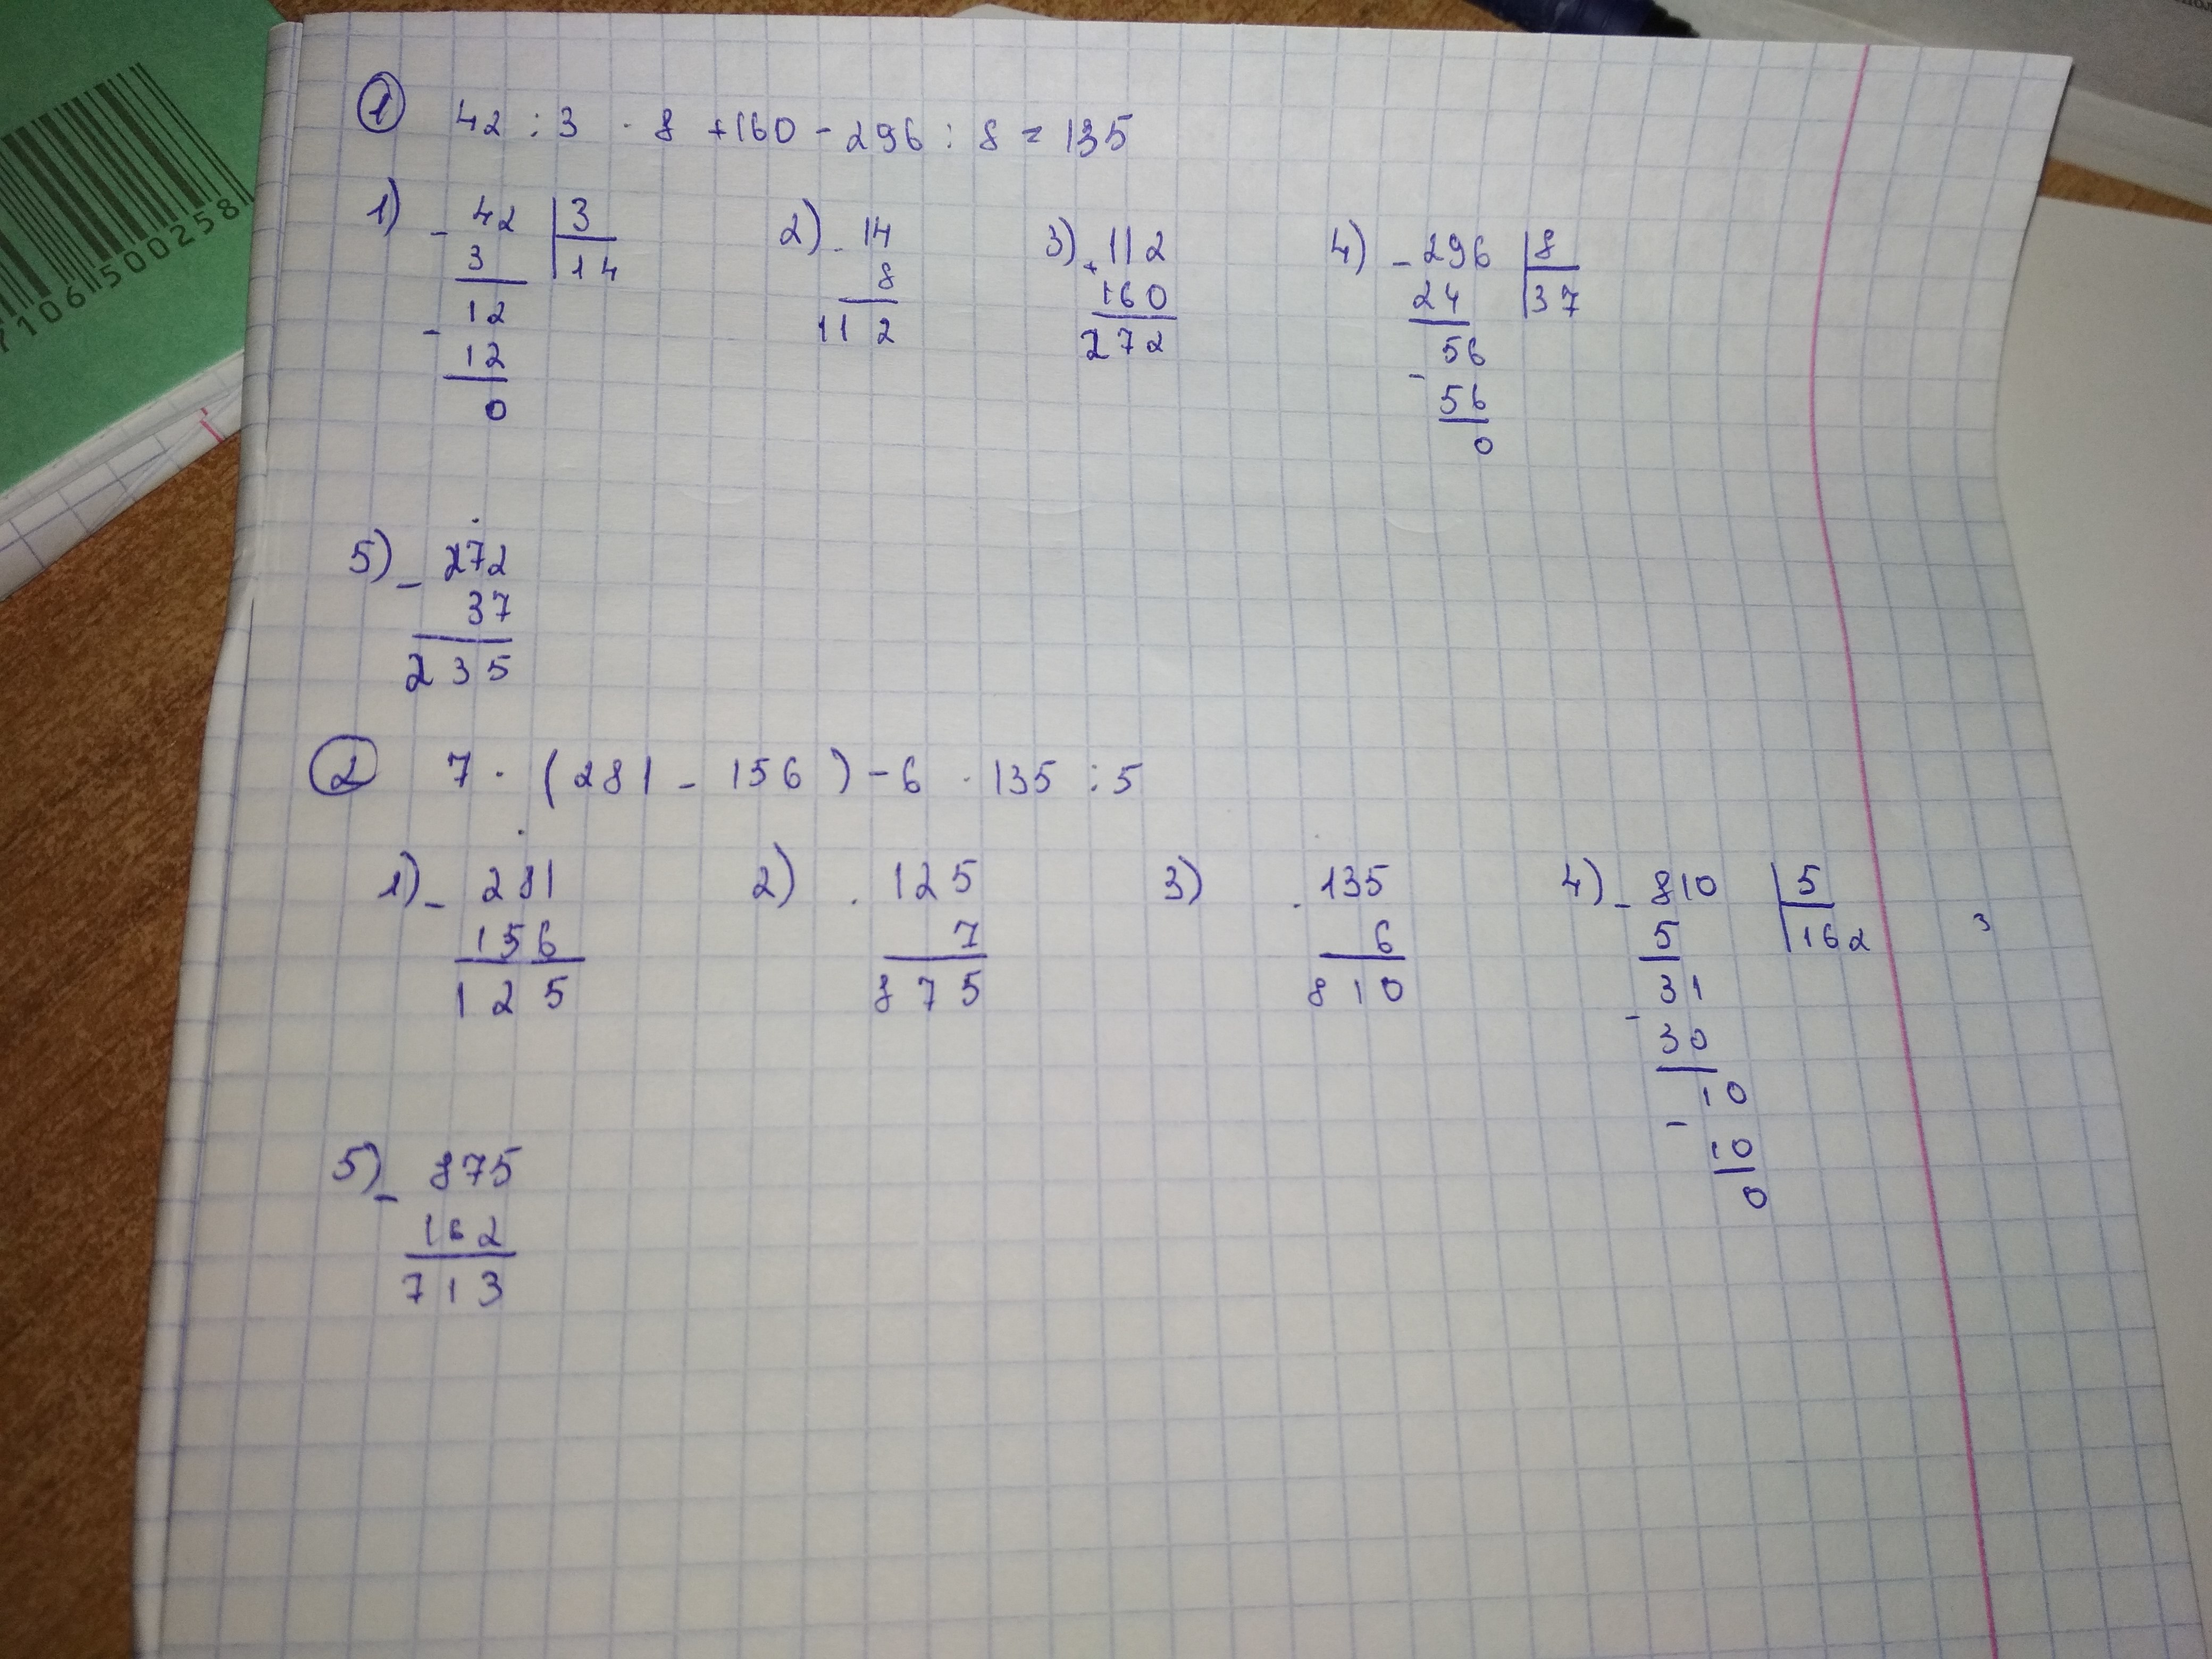 7106500258
① 42 : 3 · 8 + 160 - 296 : 8 = 135
1) - 42 | 3
3 14
12
- 12
0
2) · 14
8
112
3) + 112
160
272
4) - 296 | 8
24 37
56
- 56
0
5) - 272
37
235
② 7 · (281 - 156) - 6 · 135 : 5
1) - 281
156
125
2) · 125
7
875
3) · 135
6
810
4) - 810 | 5
5 162
31
- 30
10
- 10
0
3
5) - 875
162
713